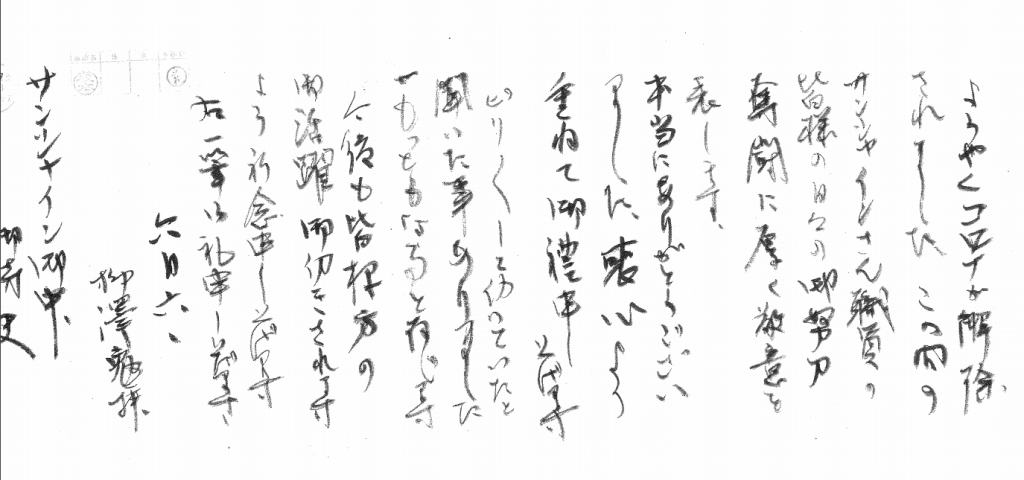 ようやくコロナが解除
されました この間の
サンシャインさん職員の
皆様の日々の御努力
奮闘に厚く敬意を
表します、
本当にありがとうござい
ました、衷心より
重ねて御禮申し上げます
ぴりぴりして働いていたと
聞いた事もありました
一もっともな事と存じます
今後も皆様方の
御活躍 御加されます
よう祈念申し上げます
右一筆御礼申し上げます
六月六、
柳澤 拝
サンシャイン御中